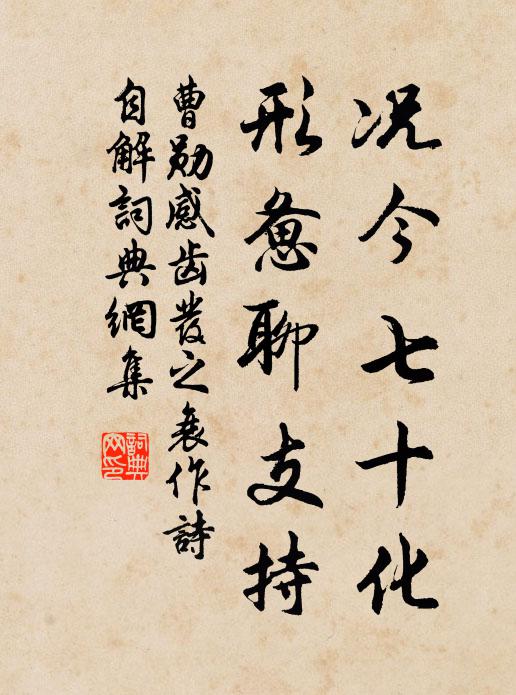 况今七十化
形惫聊支持
曹勋感齿發之衰作詩
自解詞典網集
詞典
网印